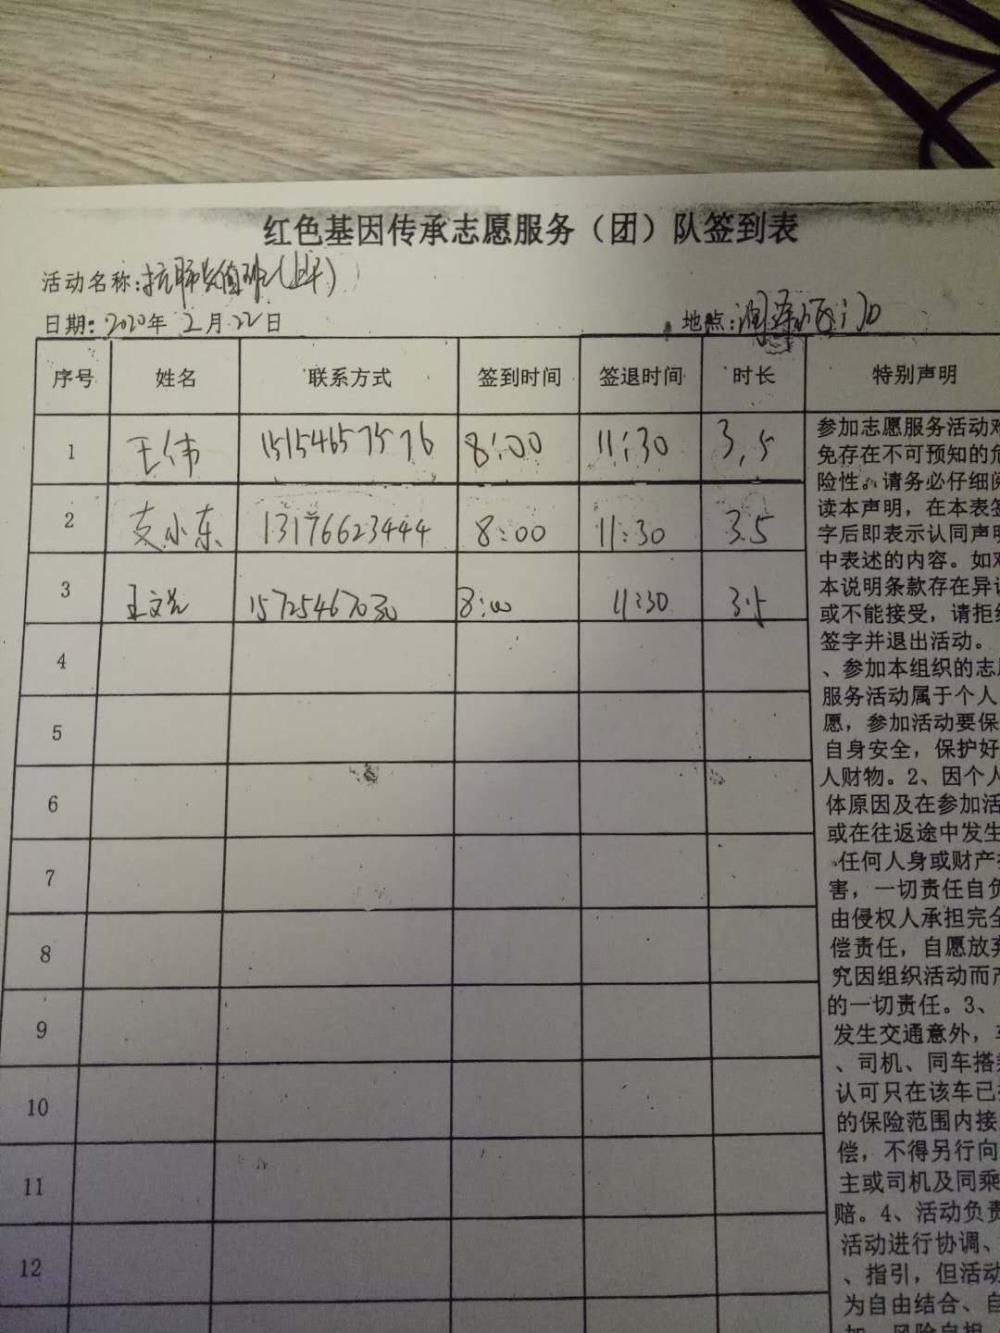 红色基因传承志愿服务（团）队签到表
活动名称:抗肺炎值班(上午)
日期: 2020年 2月22日 地点:润泽
序号 姓名 联系方式 签到时间 签退时间 时长 特别声明
1 王伟 15154657576 8:00 11:30 3.5
2 支小东 13176623444 8:00 11:30 3.5
3 王文 8:00 11:30 3.5
4
5
6
7
8
9
10
11
12
参加志愿服务活动
免存在不可预知的危
险性。请务必仔细阅
读本声明，在本表签
字后即表示认同声明
中表述的内容。如对
本说明条款存在异议
或不能接受，请拒绝
签字并退出活动。
、参加本组织的志愿
服务活动属于个人
愿，参加活动要保
自身安全，保护好
人财物。2、因个人
体原因及在参加活
或在往返途中发生
任何人身或财产
害，一切责任自负
由侵权人承担完全
偿责任，自愿放弃
究因组织活动而产
的一切责任。3、
发生交通意外，
、司机、同车搭
认可只在该车已
的保险范围内接
偿，不得另行向
主或司机及同乘
赔。4、活动负责
活动进行协调、
、指引，但活动
为自由结合、自